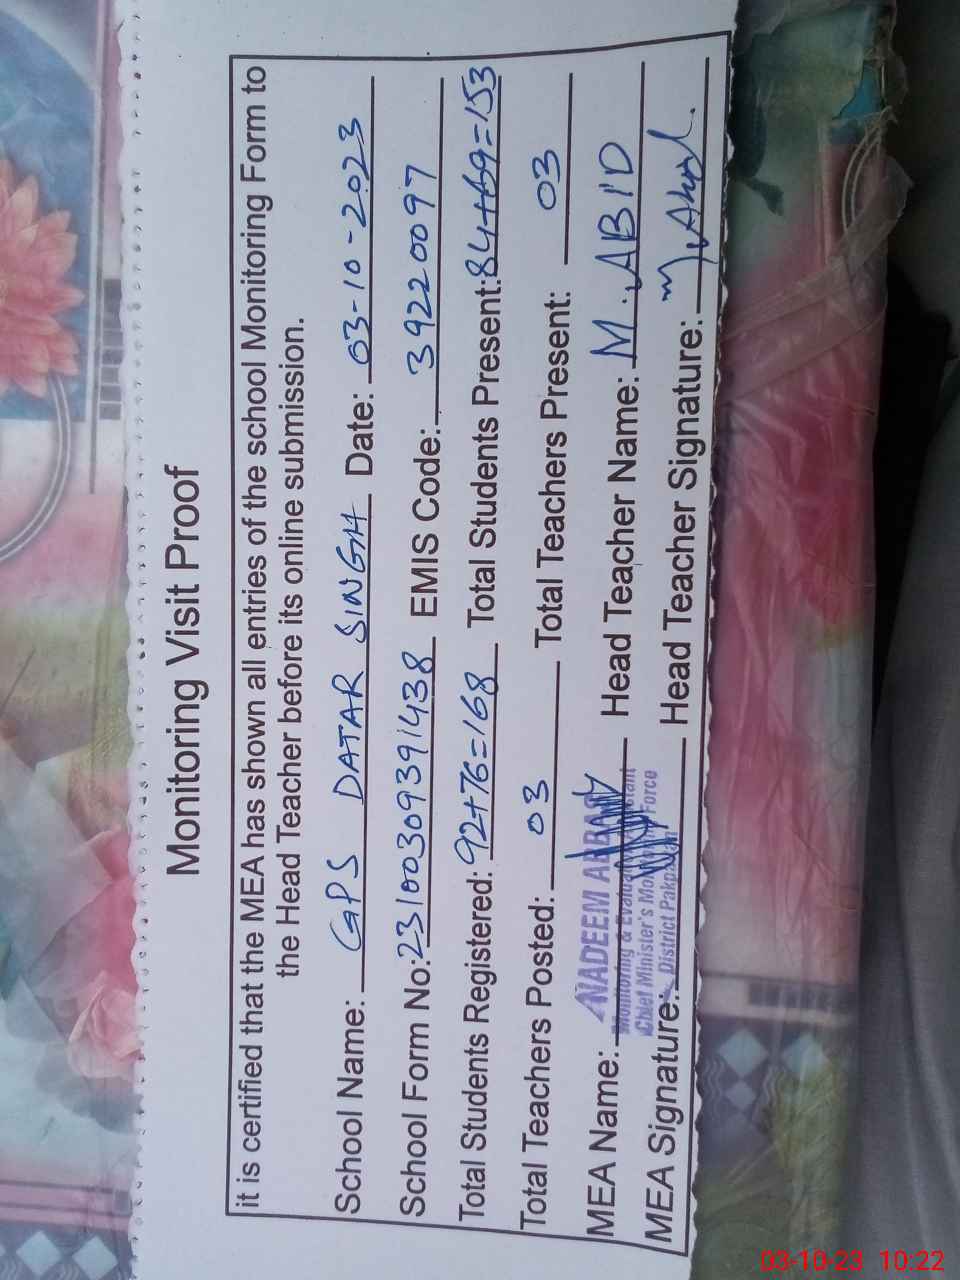 Monitoring Visit Proof
it is certified that the MEA has shown all entries of the school Monitoring Form to
the Head Teacher before its online submission.
School Name: GPS DATAR SINGH Date: 03-10-2023
School Form No: 23100309391438 EMIS Code: 39220097
Total Students Registered: 92+76=168 Total Students Present: 84+69=153
Total Teachers Posted: 03 Total Teachers Present: 03
MEA Name: Head Teacher Name: M. ABID
NADEEM ABBAS
Monitoring & Evaluation
Chief Minister's Monitoring Force
District Pakpattan
MEA Signature: Head Teacher Signature: M. Abid
03-10-23 10:22